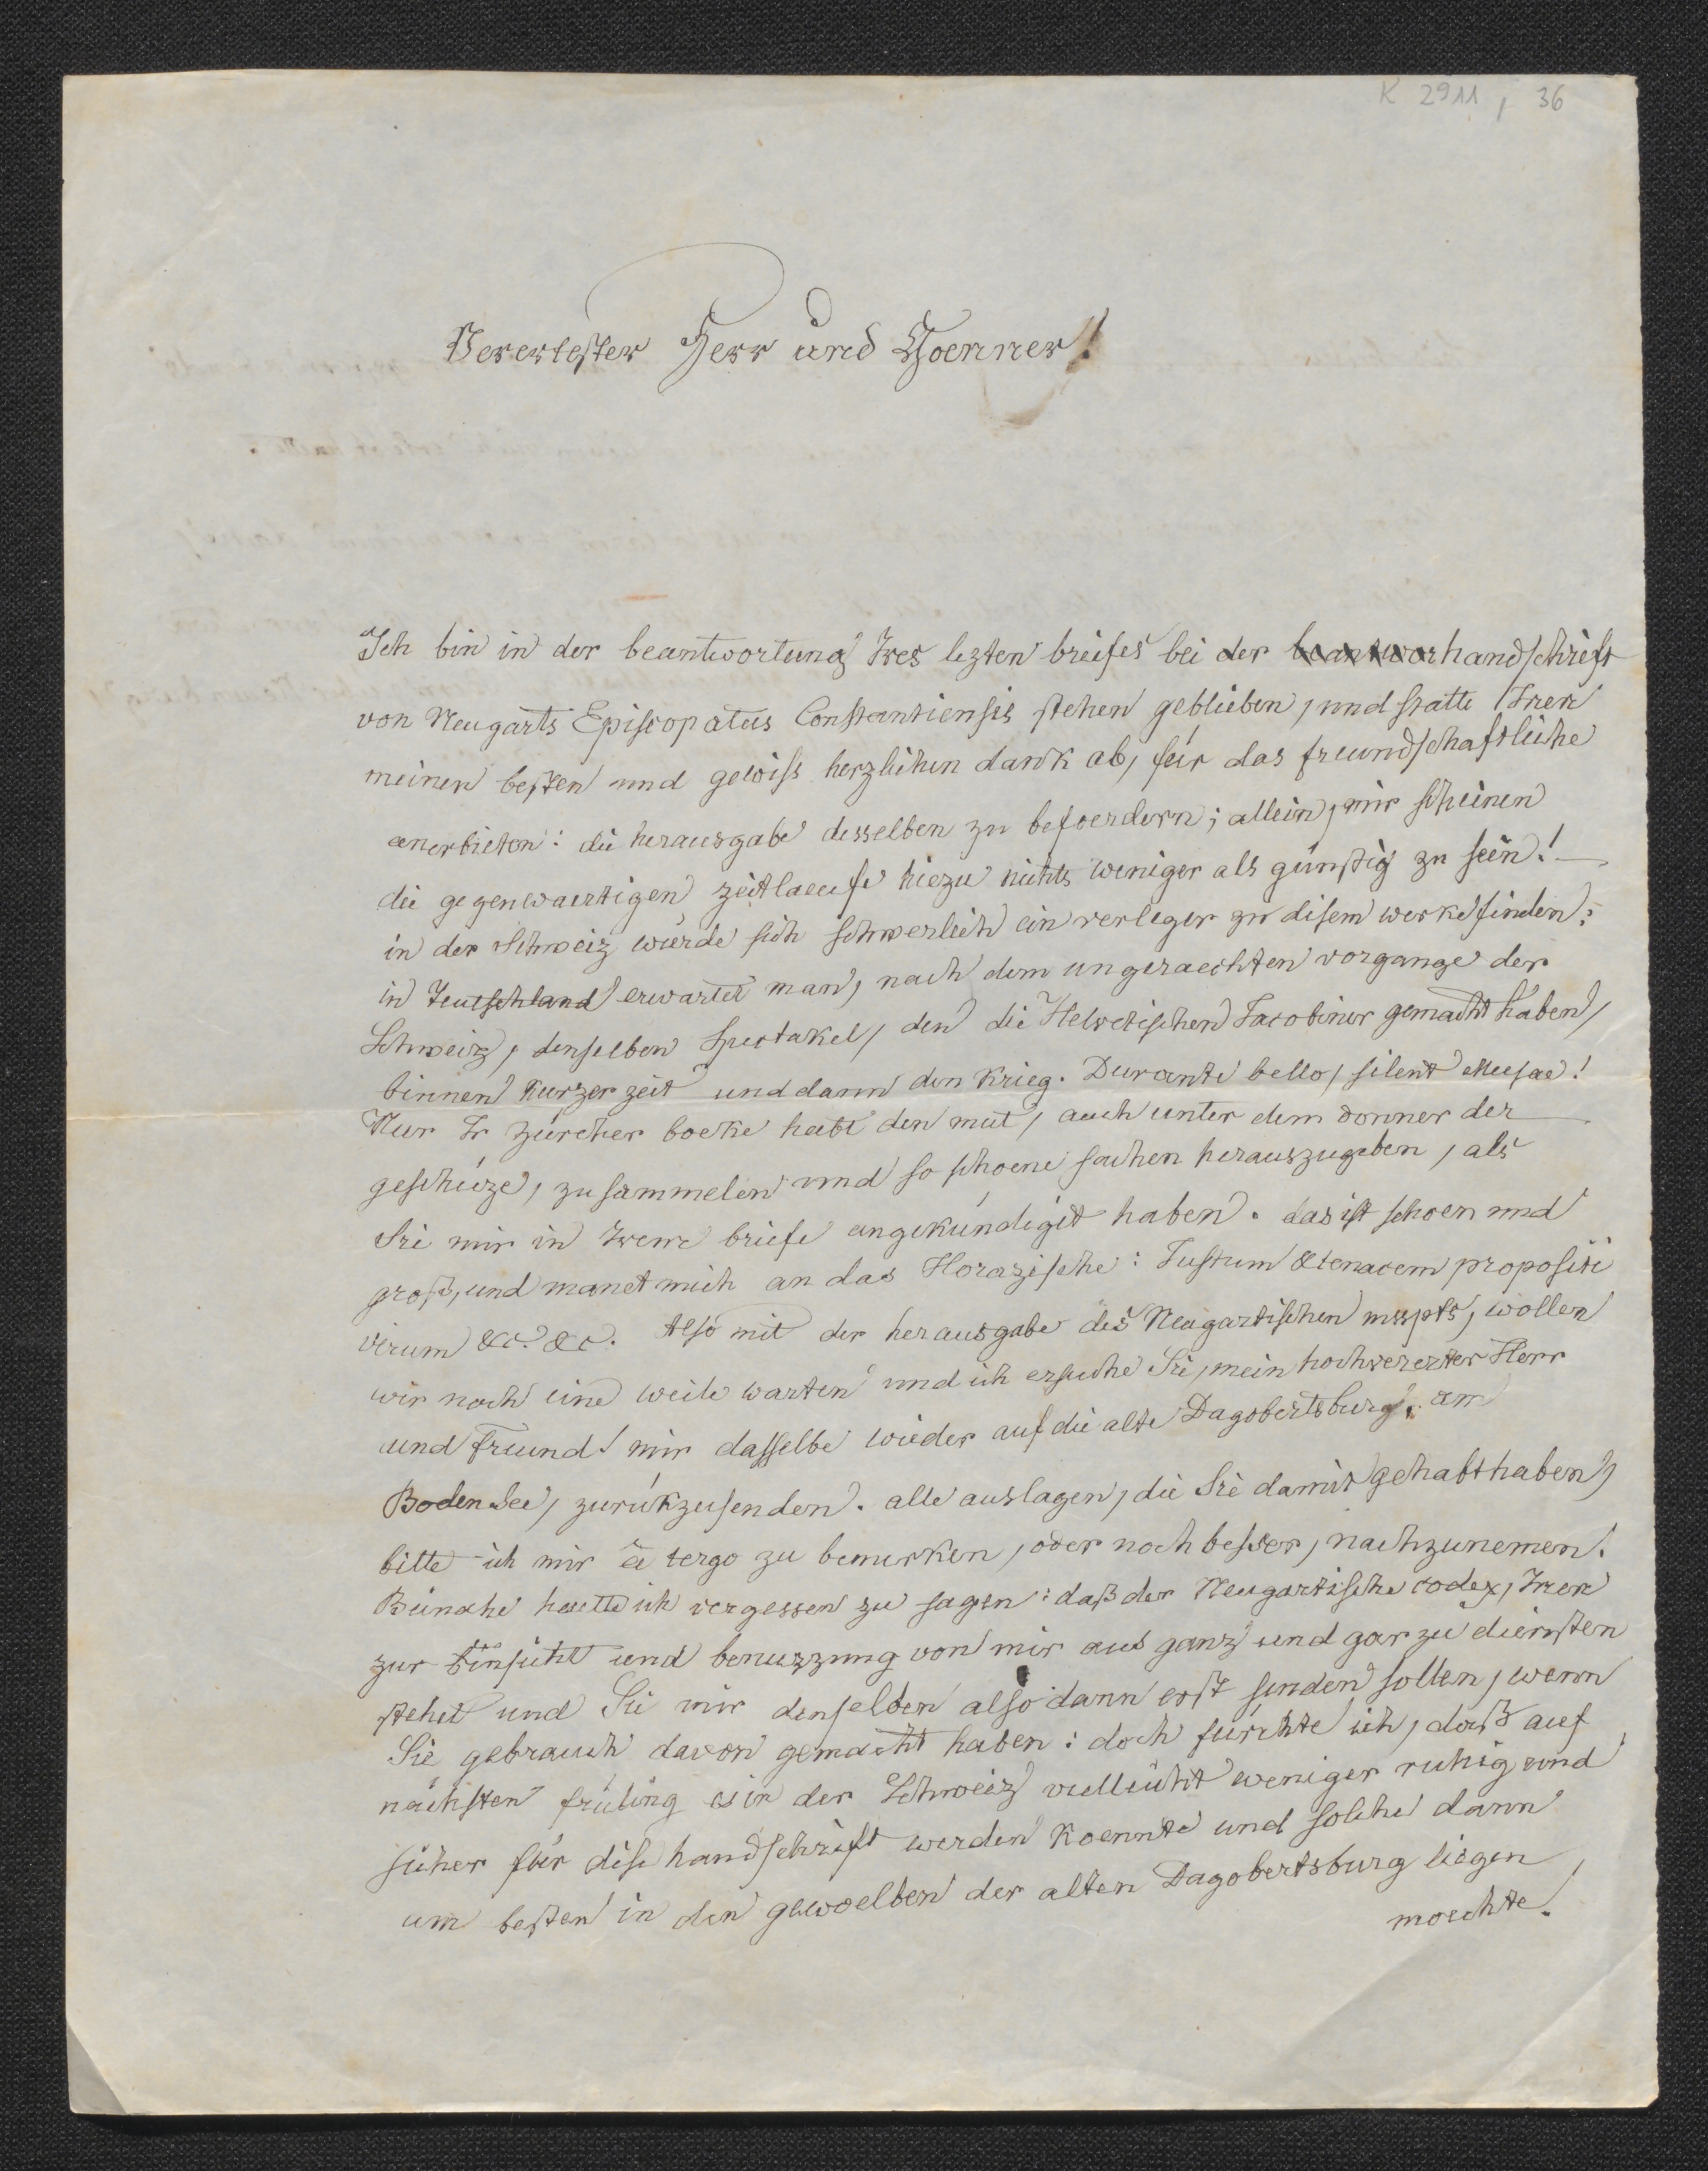 K 2911, 36
Verertester Herr und Goenner!
Ich bin in der beantwortung Ires lezten briefes bei der beantwor handschrift
von Neugarts Episcopatus Constantiensis stehen geblieben, und statte Iren
meinen besten und gewiss herzlichen dank ab, für das freundschaftliche
anerbieten: die herausgabe desselben zu befoerdern; allein, mir scheinen
die gegenwaertigen zeitlaeufe hiezu nichts weniger als günstig zu sein! –
in der Schweiz würde sich schwerlich ein verleger zu disem werke finden:
in Teutschland erwartet man, nach dem ungeraechten vorgange der
Schweiz, denselben Spectakel, den die Helvetischen Jacobiner gemacht haben,
binnen kurzer zeit und dann den krieg. Durante bello, silent Musae!
Nur Ir Zürcher boeke habt den mut, auch unter dem donner der
geschüze, zu sammelen und so schoene sachen herauszugeben, als
Sie mir in Irem briefe angekündigit haben. das ist schoen und
groß, und manet mich an das Horazische: Justum & tenacem propositi
virum &c. &c. Also mit der herausgabe des Neugartischen mspts, wollen
wir noch eine weile warten und ich ersuche Sie, mein hochvererter Herr
und Freund! mir dasselbe wieder auf die alte Dagobertsburg, am
Bodensee, zurükzusenden. alle auslagen, die Sie damit gehabt haben,
bitte ich mir à tergo zu bemerken, oder noch besser, nachzunemen.
Beinahe haette ich vergessen zu sagen: daß der Neugartische codex, Iren
zur Einsicht und benuzzung von mir aus ganz und gar zu diensten
stehet und Sie mir denselben also dann erst senden sollen, wenn
Sie gebrauch davon gemacht haben: doch fürchte ich, daß auf
nächsten früling es in der Schweiz vielleicht weniger ruhig und
sicher für dise handschrift werden koennte und solche dann
am besten in den gewoelben der alten Dagobertsburg liegen
moechte.